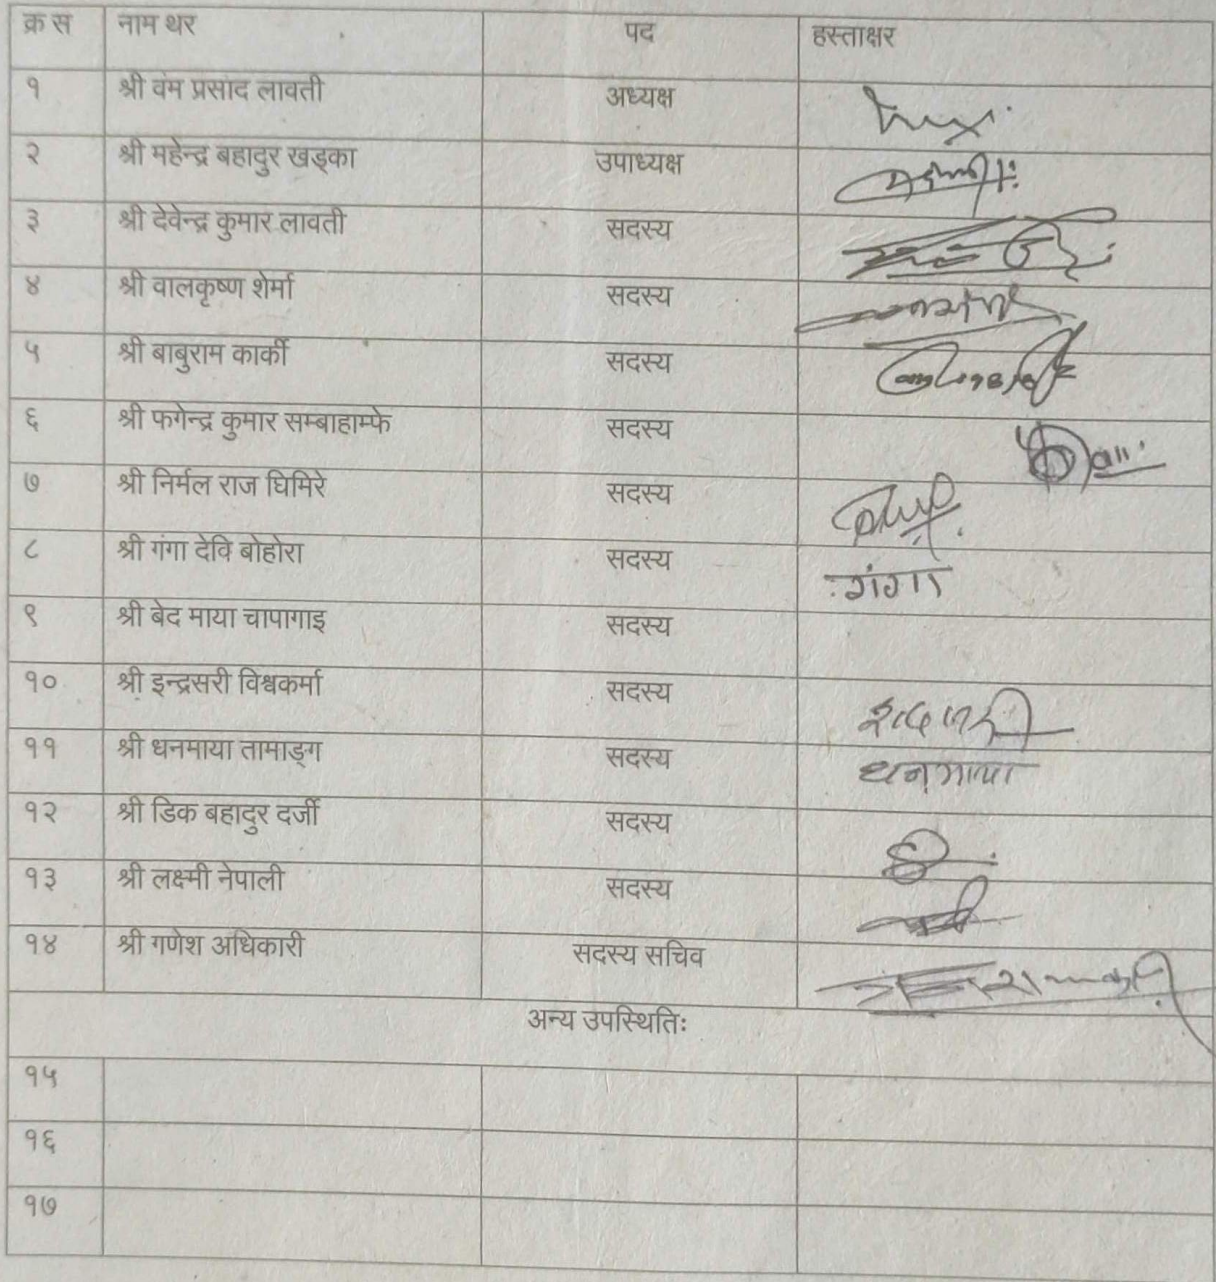 क्र स नाम थर पद हस्ताक्षर
१ श्री वम प्रसाद लावती अध्यक्ष
२ श्री महेन्द्र बहादुर खड्का उपाध्यक्ष
३ श्री देवेन्द्र कुमार लावती सदस्य
४ श्री वालकृष्ण शेर्मा सदस्य
५ श्री बाबुराम कार्की सदस्य
६ श्री फगेन्द्र कुमार सम्बाहाम्फे सदस्य
७ श्री निर्मल राज घिमिरे सदस्य
८ श्री गंगा देवि बोहोरा सदस्य गंगा
९ श्री बेद माया चापागाइ सदस्य
१० श्री इन्द्रसरी विश्वकर्मा सदस्य
११ श्री धनमाया तामाङ्ग सदस्य धनमाया
१२ श्री डिक बहादुर दर्जी सदस्य
१३ श्री लक्ष्मी नेपाली सदस्य
१४ श्री गणेश अधिकारी सदस्य सचिव
अन्य उपस्थितिः
१५
१६
१७